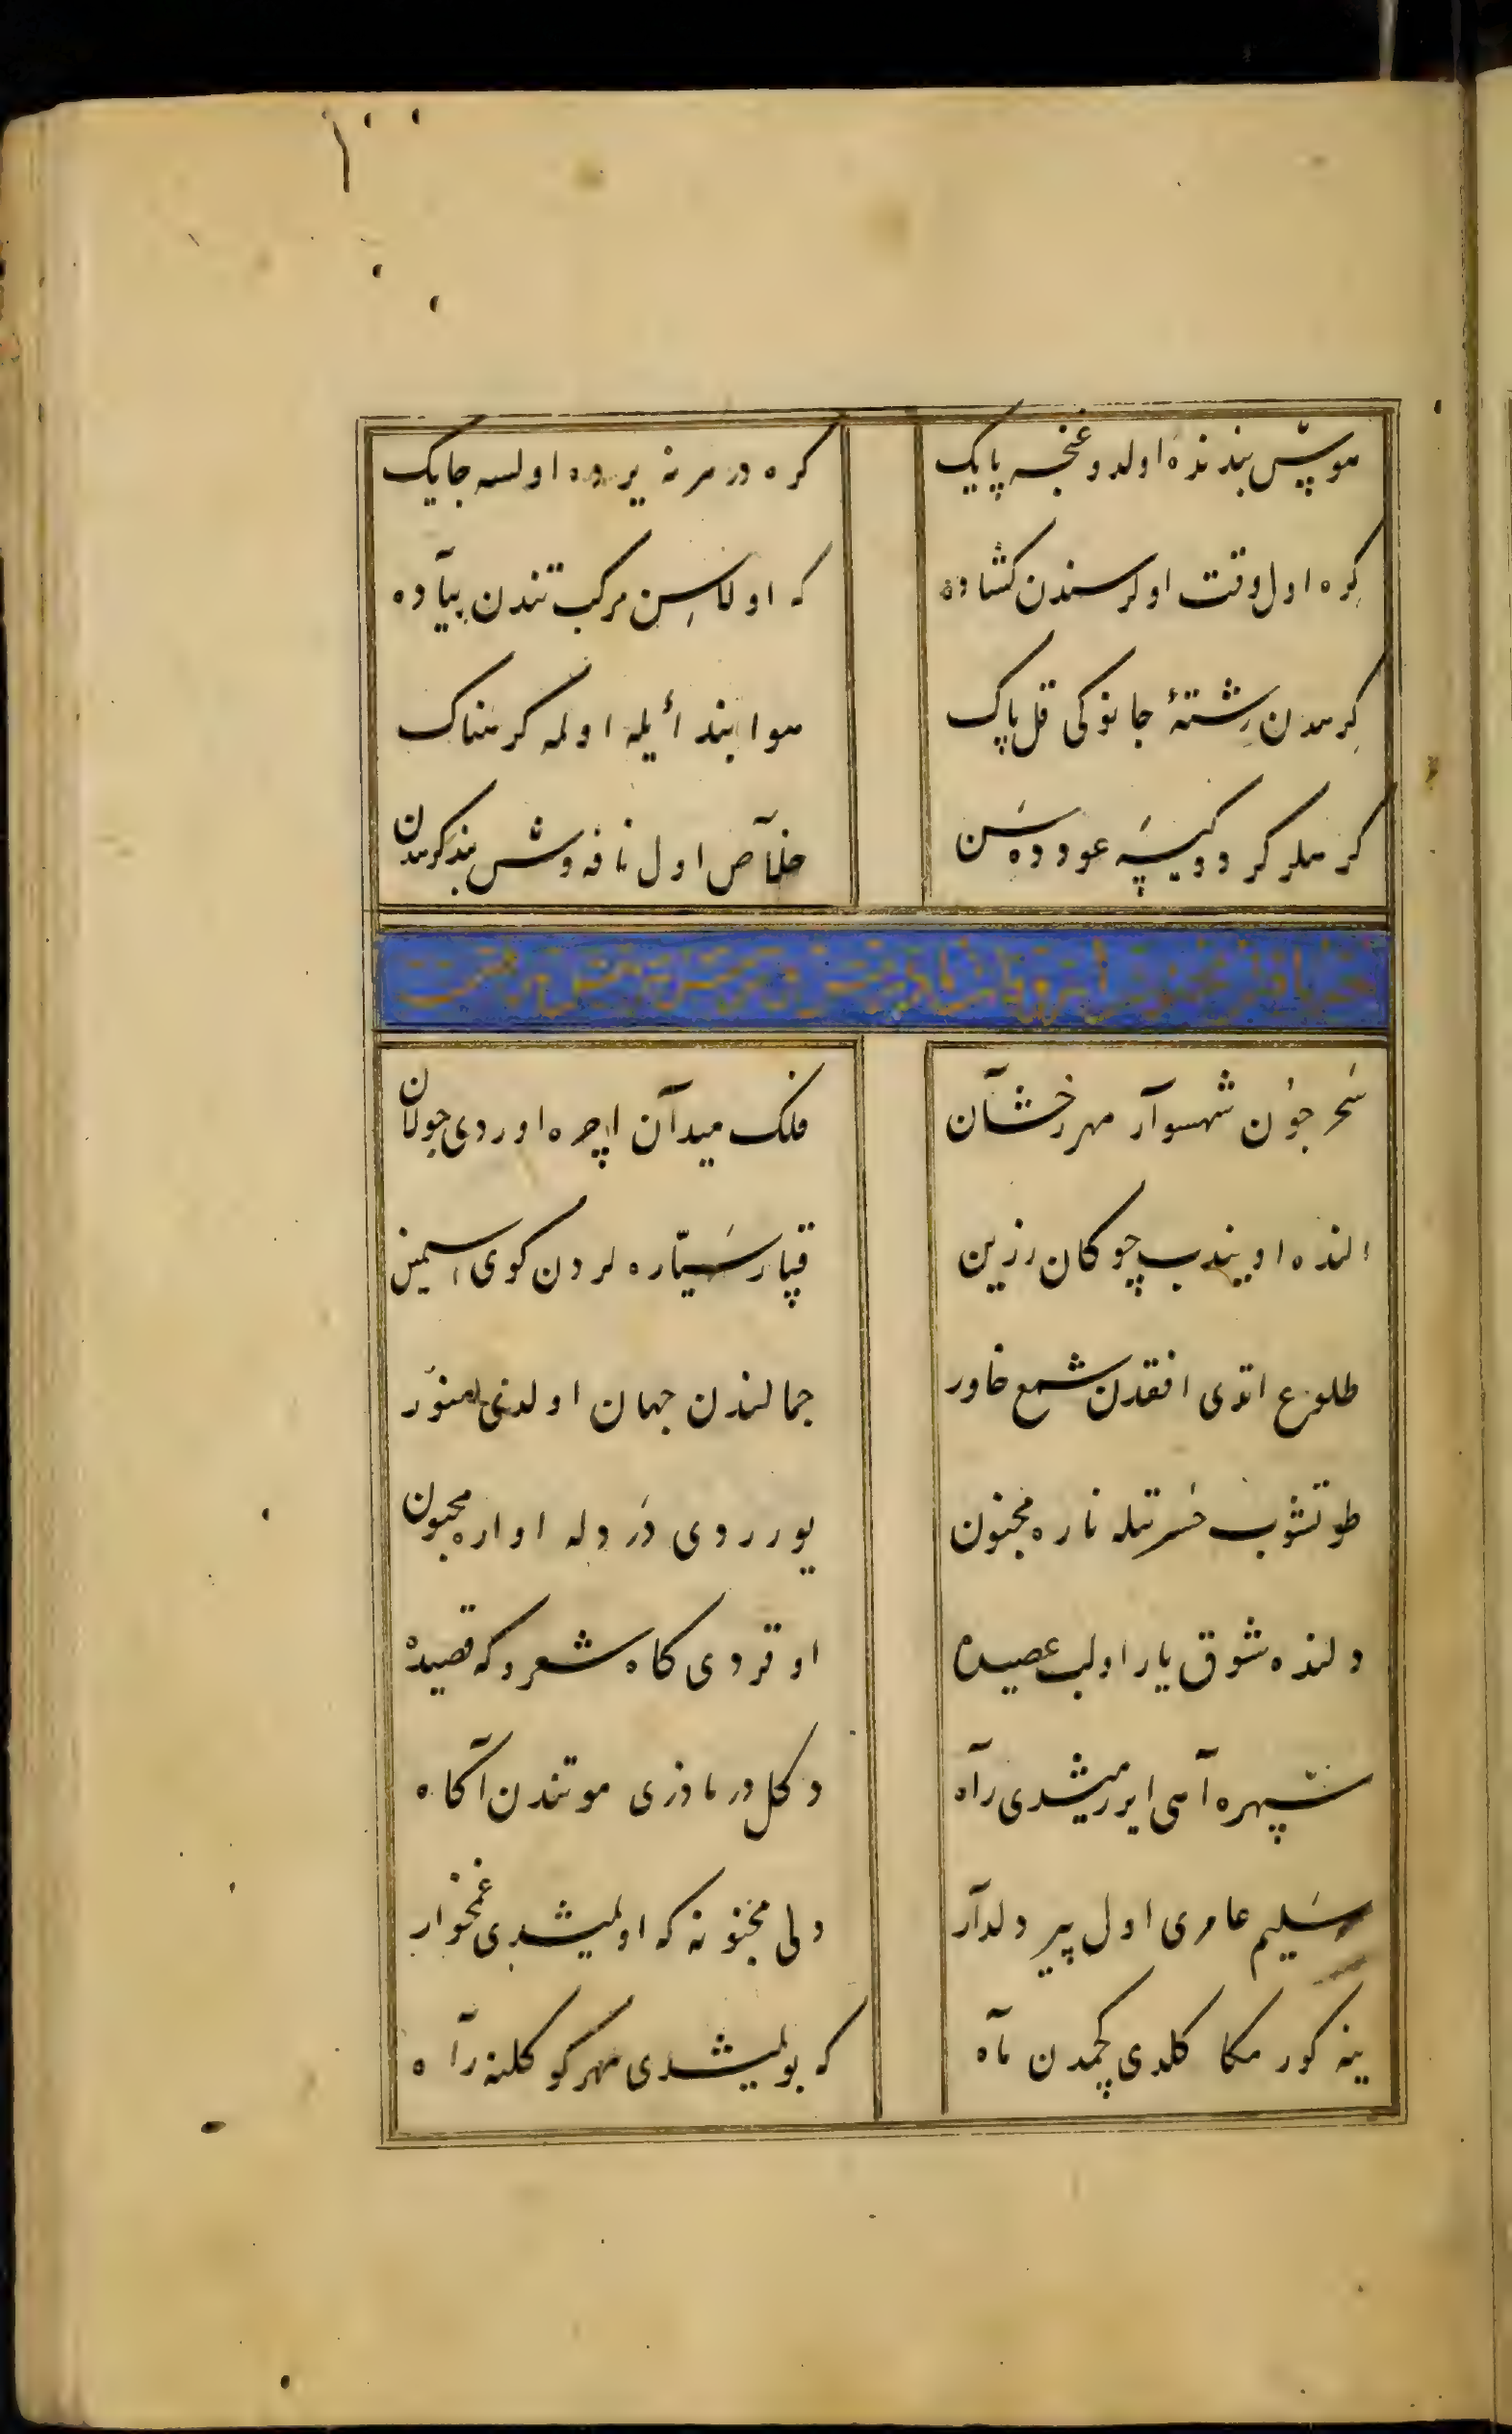 هوپس بندنده اولد و غنچه پایک کره در هر نه یرده اولسه جایک
کره اول وقت اولر سندن کشاده که اولاسن مرکب تندن پیاده
کرهدن رشتهٔ جانوکی قل پاک هوا بند أیله اولمه کرهناک
کرهلر کر دوکیسه عودوه سن خلاص اول نافه وش بند کرهدن
سحر چون شهسوار مهر رخشان فلک میدان اچره اوردی جولان
النده اویندب چوکان زرین قپار سیّاره لردن کوی سیمین
طلوع اتدی افقدن شمع خاور جمالندن جهان اولدی منوّر
طوتشوب حسرتله ناره مجنون یوردی درد له اواره مجنون
دلنده شوق یار اولب عصیده اوقردی کاه شعر و که قصیده
سپهره آهی ایررمیشدی راه دکل در مادری موتندن آکاه
سلیم عامری اول پیر دلدار ولی مجنونه که اولمیشدی غمخوار
ینه کورمکا کلدی کچمدن ماه که بولمیشدی مهر کوکلنه راه